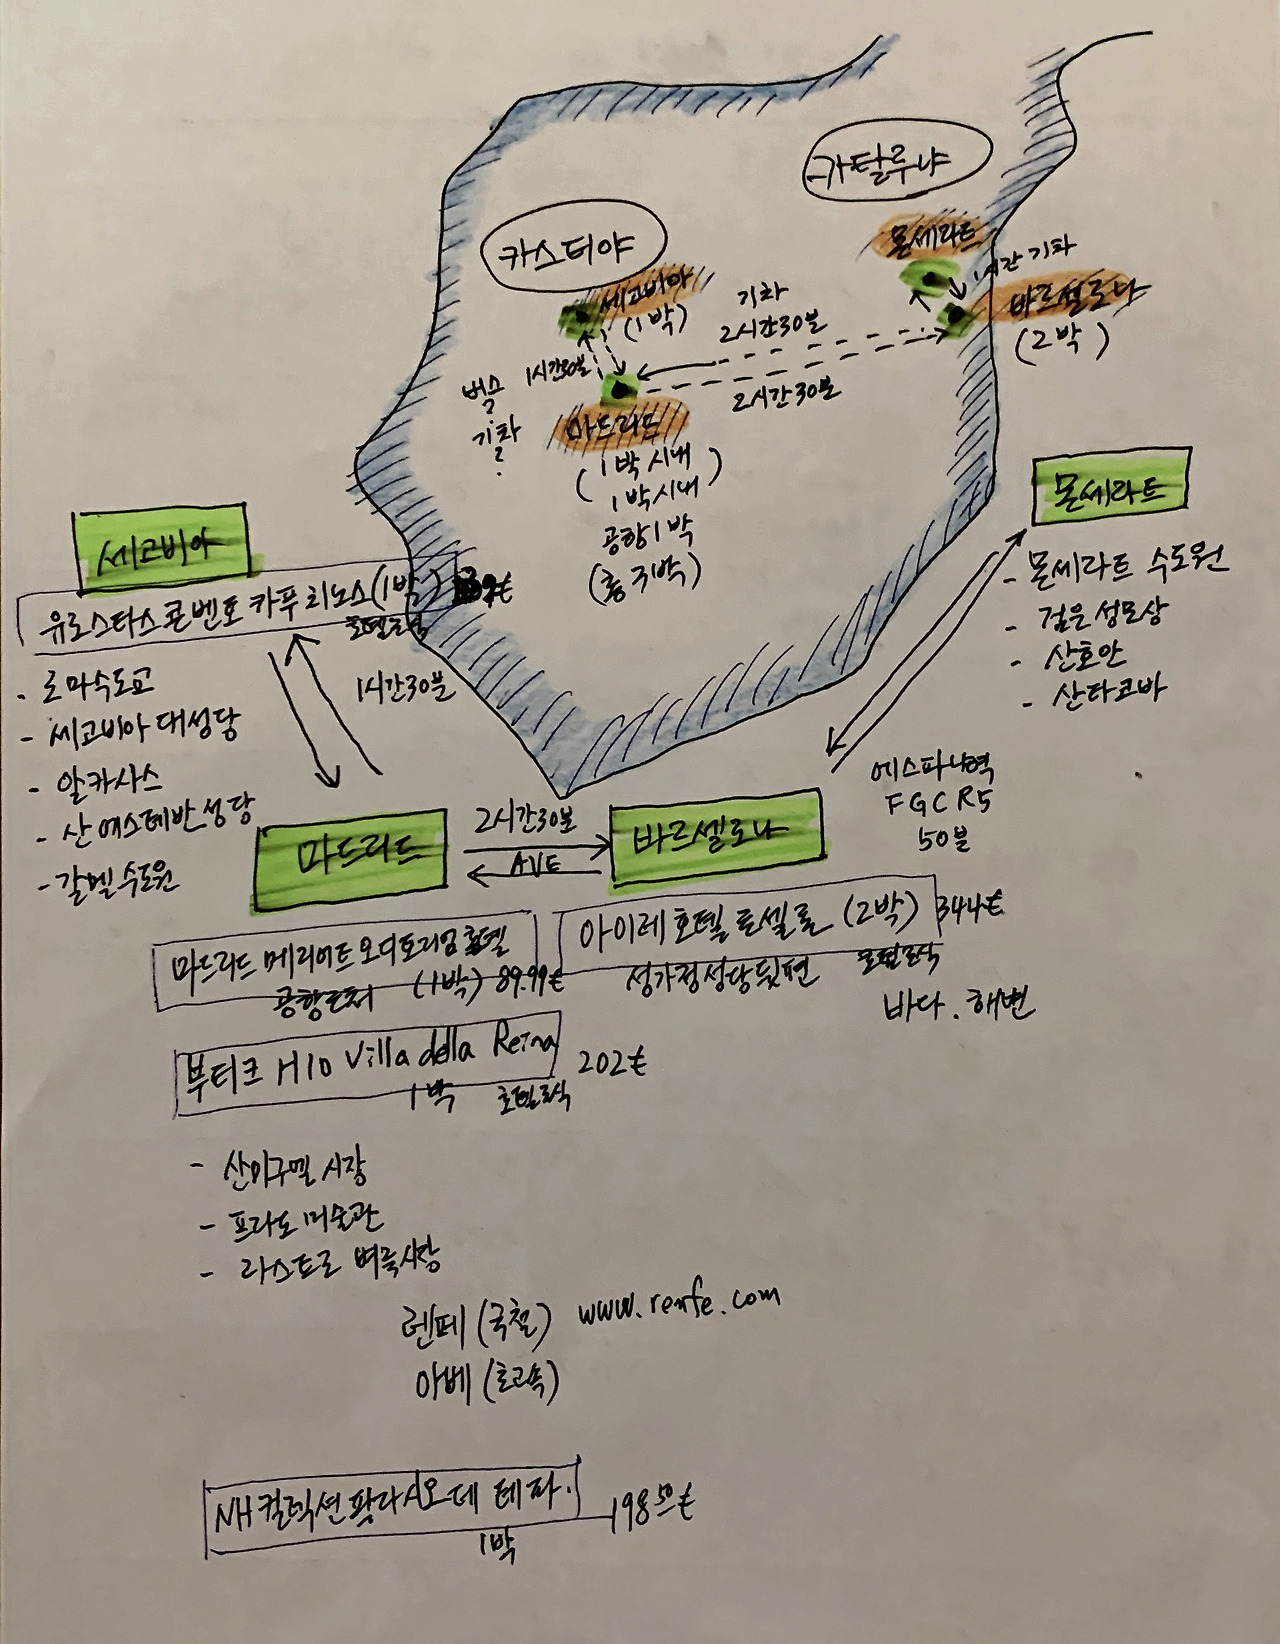 카탈루냐
카스티야
몬세라트
1시간 기차
세고비아
(1박)
기차
2시간30분
바르셀로나
(2박)
1시간30분
2시간30분
버스
?
기차
?
마드리드
(1박 시내)
1박 시내
공항 1박
(총 3박)
몬세라트
- 몬세라트 수도원
- 검은 성모상
- 산호안
- 산타코바
세고비아
유로스타스 콘벤토 카푸치노스 (1박)
호텔조식
1시간30분
- 로마수도교
- 세고비아 대성당
- 알카사스
- 산 에스테반 성당
- 갈멜 수도원
에스파냐역
FGC R5
50분
마드리드
2시간30분
AVE
바르셀로나
마드리드 메리어트 오디토리엄 호텔
공항근처 (1박) 89.99€
아이레 호텔 로셀론 (2박) 344€
성가정성당 뒷편 호텔조식
바다. 해변
부티크 H10 Villa della Reina
1박 호텔조식
202€
- 산미구엘 시장
- 프라도 미술관
- 라스트로 벼룩시장
렌페 (국철) www.renfe.com
아베 (초고속)
NH 컬렉션 팔라시오 데 테파.
1박
198.50€